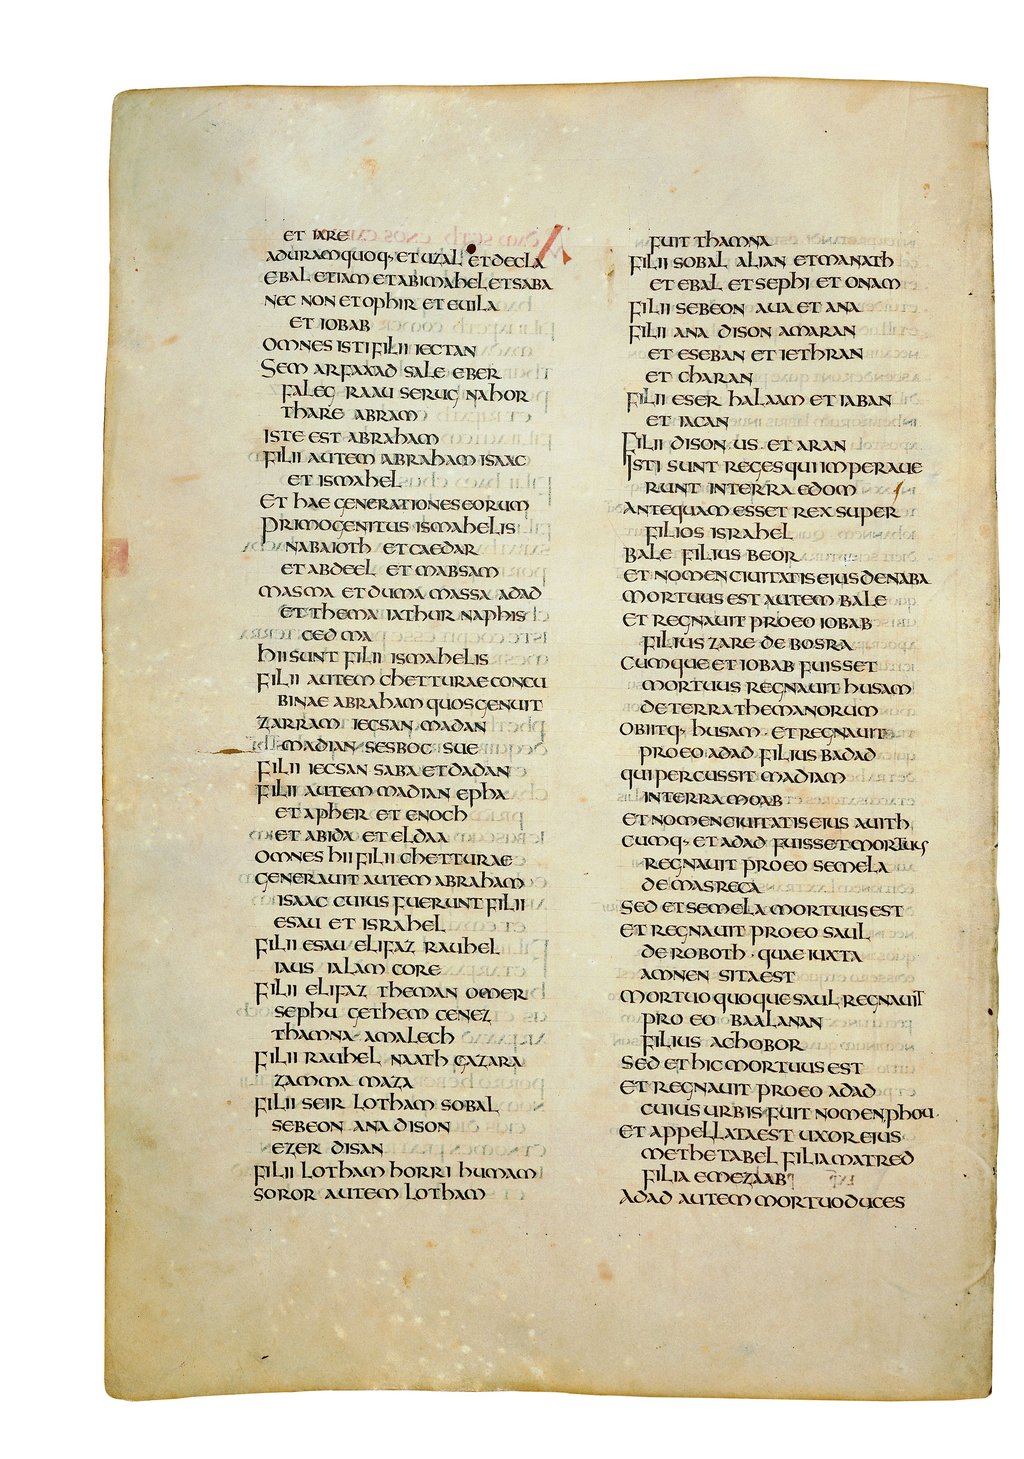 ET IARE
ADURAMQUOQ· ET UZAL ET DECLA
EBAL ETIAM ET ABIMAHEL ET SABA
NEC NON ET OPHIR ET EUILA
ET IOBAB
OMNES ISTI FILII IECTAN
SEM ARFAXAD SALE EBER
FALEG RAAU SERUG NAHOR
THARE ABRAM
ISTE EST ABRAHAM
FILII AUTEM ABRAHAM ISAAC
ET ISMAHEL
ET HAE GENERATIONES EORUM
PRIMOGENITUS ISMAHELIS
NABAIOTH ET CAEDAR
ET ABDEEL ET MABSAM
MASMA ET DUMA MASSA ADAD
ET THEMA IATHUR NAPHIS
CEDMA
HII SUNT FILII ISMAHELIS
FILII AUTEM CHETTURAE CONCU
BINAE ABRAHAM QUOS GENUIT
ZARRAM IECSAN MADAN
MADIAN SESBOC SUE
FILII IECSAN SABA ET DADAN
FILII AUTEM MADIAN EPHA
ET APHER ET ENOCH
ET ABIDA ET ELDAA
OMNES HII FILII CHETTURAE
GENERAUIT AUTEM ABRAHAM
ISAAC CUIUS FUERUNT FILII
ESAU ET ISRAHEL
FILII ESAU ELIFAZ RAUHEL
IAUS IALAM CORE
FILII ELIFAZ THEMAN OMER
SEPHU GETHEM CENEZ
THAMNA AMALECH
FILII RAUHEL NAATH GAZARA
ZAMMA MAZA
FILII SEIR LOTHAM SOBAL
SEBEON ANA DISON
EZER DISAN
FILII LOTHAM HORRI HUMAM
SOROR AUTEM LOTHAM
FUIT THAMNA
FILII SOBAL ALIAN ET MANATH
ET EBAL ET SEPHI ET ONAM
FILII SEBEON AUA ET ANA
FILII ANA DISON AMARAN
ET ESEBAN ET IETHRAN
ET CHARAN
FILII ESER BALAAM ET IABAN
ET IACAN
FILII DISON US ET ARAN
ISTI SUNT REGES QUI IMPERAUE
RUNT IN TERRA EDOM
ANTEQUAM ESSET REX SUPER
FILIOS ISRAHEL
BALE FILIUS BEOR
ET NOMEN CIUITATIS EIUS DENABA
MORTUUS EST AUTEM BALE
ET REGNAUIT PRO EO IOBAB
FILIUS ZARE DE BOSRA
CUMQUE ET IOBAB FUISSET
MORTUUS REGNAUIT HUSAM
DE TERRA THEMANORUM
OBIITQ· HUSAM · ET REGNAUIT
PRO EO ADAD FILIUS BADAD
QUI PERCUSSIT MADIAM
IN TERRA MOAB
ET NOMEN CIUITATIS EIUS AUITH
CUMQ· ET ADAD FUISSET MORTUUS
REGNAUIT PRO EO SEMELA
DE MASRECA
SED ET SEMELA MORTUUS EST
ET REGNAUIT PRO EO SAUL
DE ROBOTH · QUAE IUXTA
AMNEN SITA EST
MORTUO QUOQUE SAUL REGNAUIT
PRO EO BAALANAN
FILIUS ACHOBOR
SED ET HIC MORTUUS EST
ET REGNAUIT PRO EO ADAD
CUIUS URBIS FUIT NOMEN PHOU·
ET APPELLATA EST UXOR EIUS
METHETABEL FILIA MATRED
FILIA EMEZAAB
ADAD AUTEM MORTUO DUCES